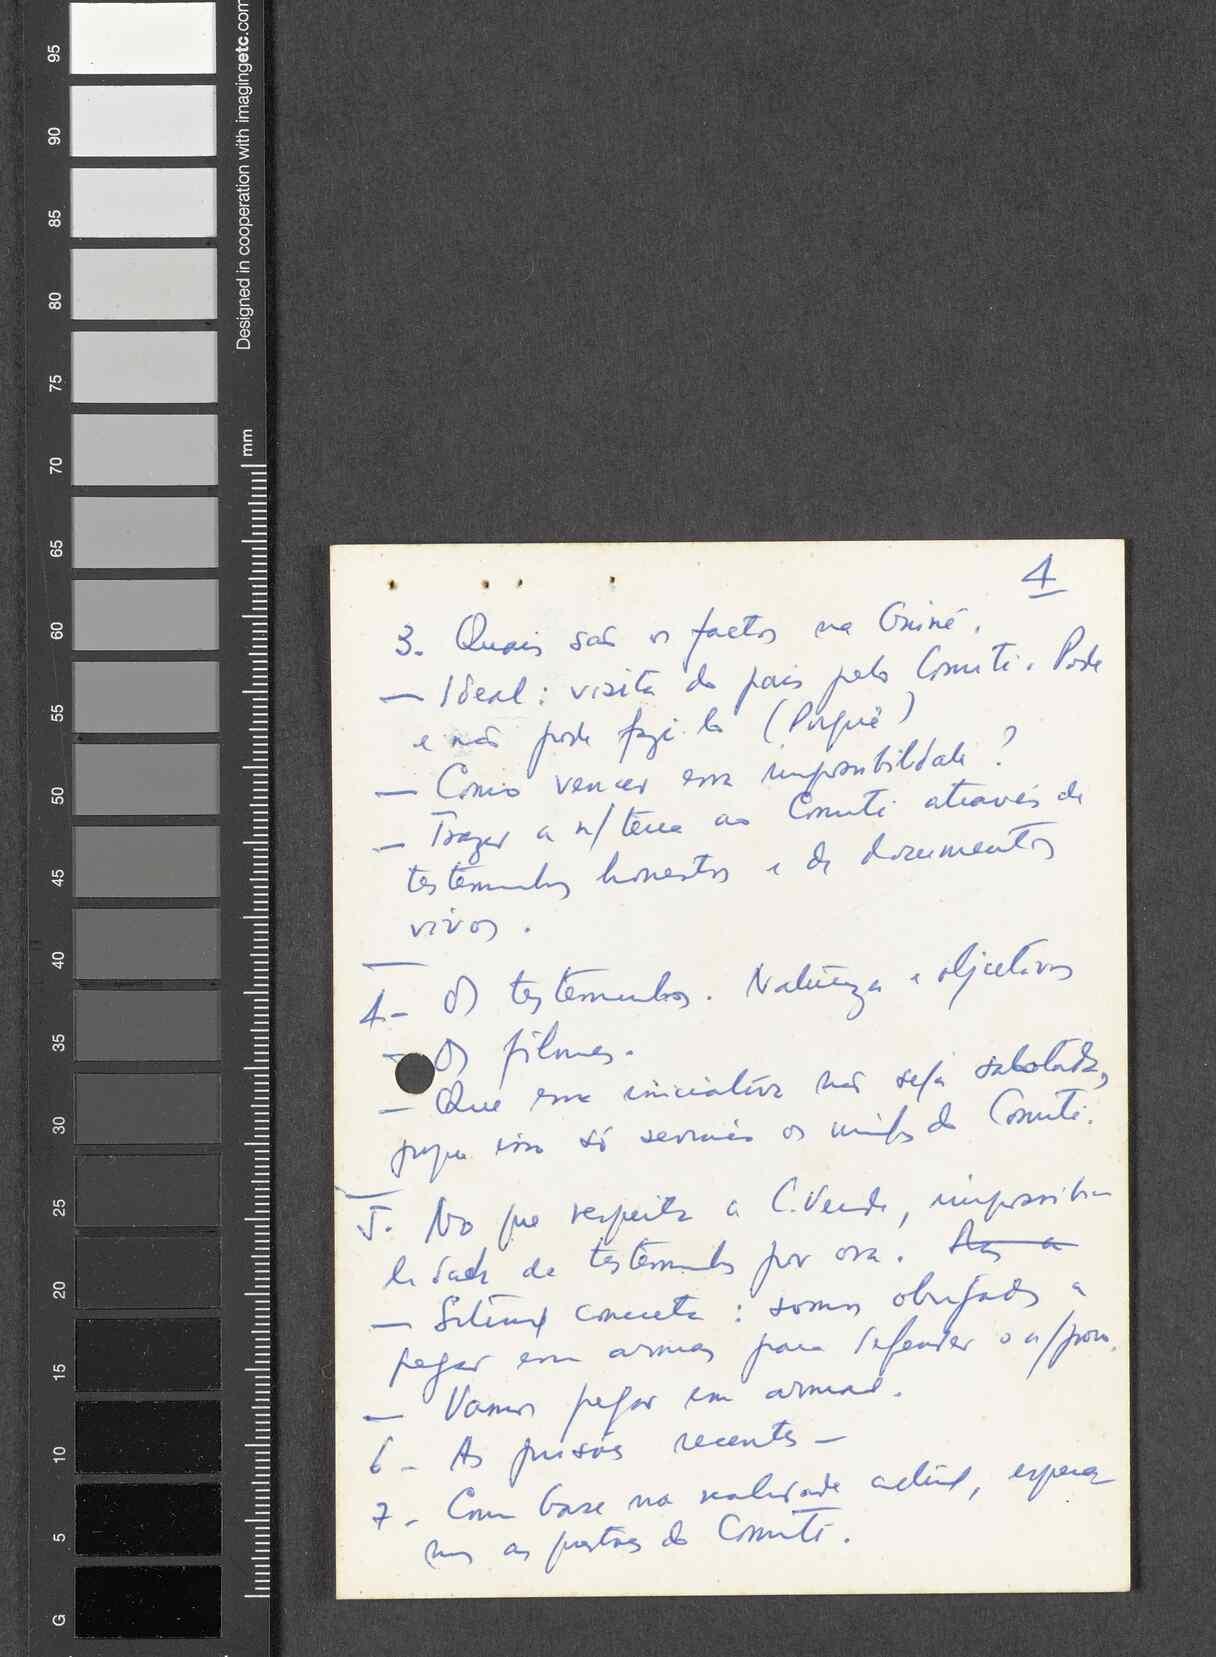 95
90
85
80
75
70
65
60
55
50
45
40
35
30
25
20
15
10
5
G
Designed in cooperation with imagingetc.com
mm
4
3. Quais são os factos na Guiné.
— Ideal: visita do país pelo Comité. Pode
e não pode fazê-lo (Porquê)
— Como vencer essa impossibilidade?
— Trazer a n/ terra ao Comité através de
testemunhos honestos e de documentos
vivos.
4- Os testemunhos. Natureza e objectivos
- Os filmes.
— Que essa iniciativa não seja sabotada,
porque isso só servirá os do Comité.
5. No que respeita a C. Verde, impossibi-
lidade de testemunhos por ora. Mas a
— Situaç concreta: somos obrigados a
pegar em armas para defender o n/ povo.
— Vamos pegar em armas.
6- As prisões recentes —
7- Com base na realidade actual, espera
mos as do Comité.